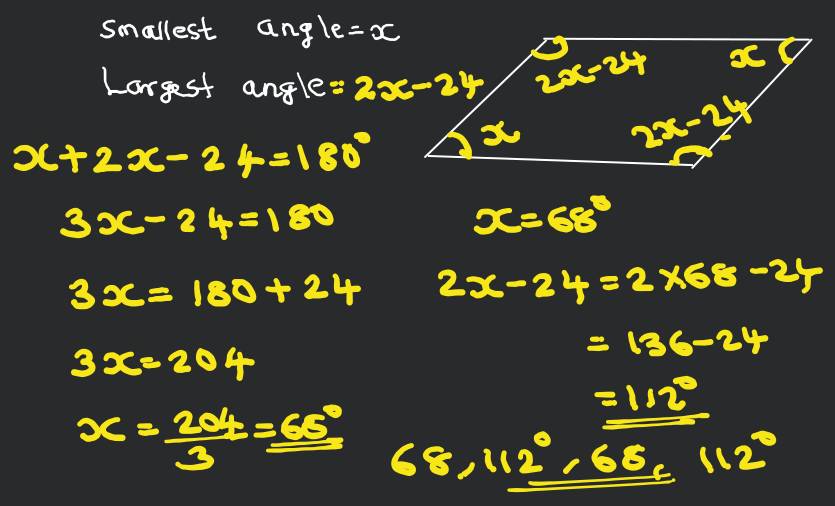 Smallest angle=x
Largest angle=2x-24
2x-24
x
x
2x-24
x+2x-24=180°
3x-24=180
3x=180+24
3x=204
x=204/3=68°
x=68°
2x-24=2×68-24
=136-24
=112°
68,112°,68, 112°